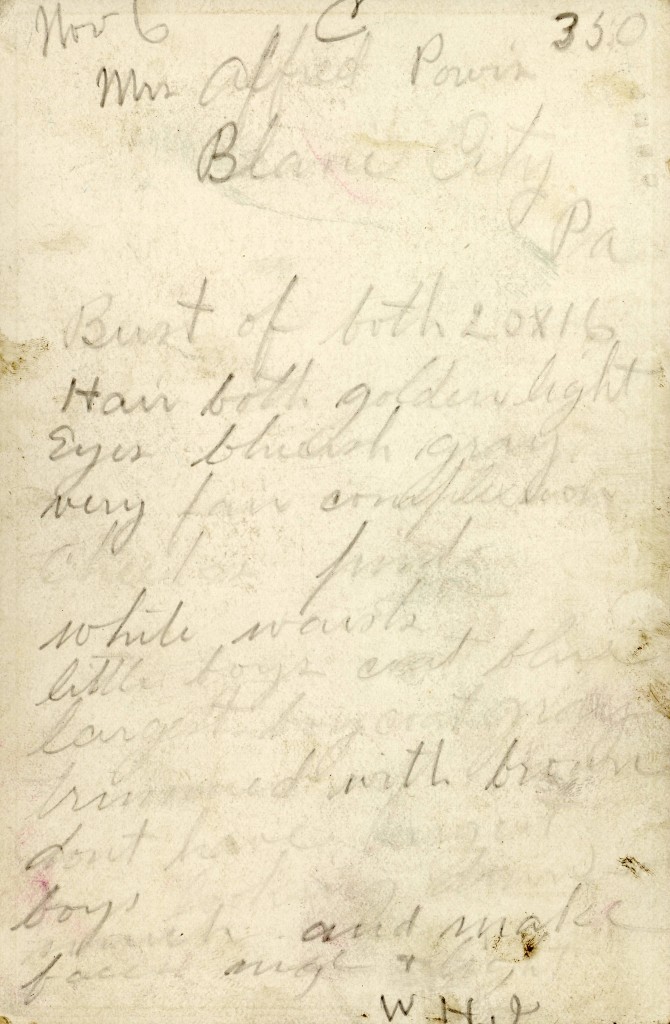 Nov 6 C 350
Mrs Alfred Powis
City
Pa
Bust of both 20x16
Hair both golden light
Eyes blueish gray
very fair complexion
Cheeks pink
white waists
little boys coat blue
largest boy coat
trimmed with brown
dont have
boys
much and make
faces nice & light
W H